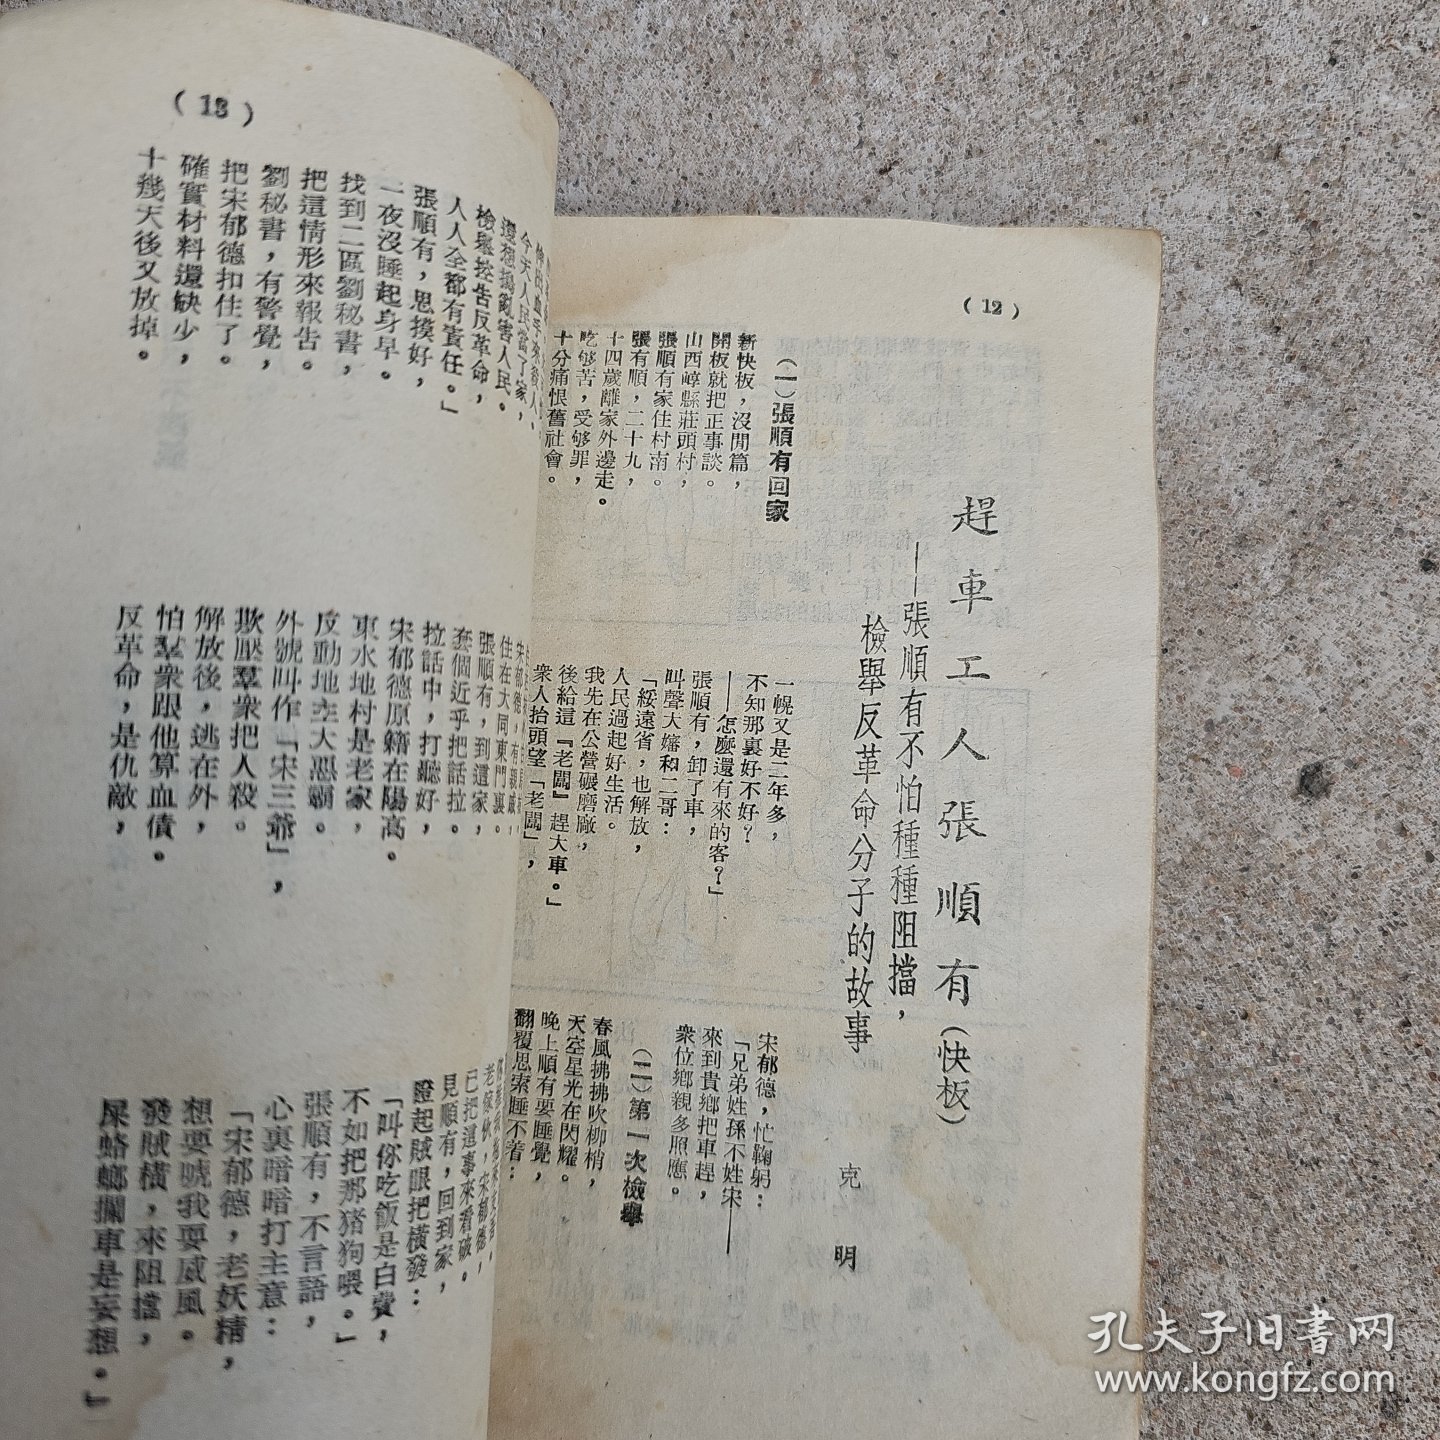 （12）
趕車工人張順有（快板）
——張順有不怕種種阻擋，
檢舉反革命分子的故事
克明
（一）張順有回家
新快板，沒閒篇，
開板就把正事談。
山西崞縣莊頭村，
張順有家住村南。
張有順，二十九，
十四歲離家外邊走。
吃够苦，受够罪，
十分痛恨舊社會。
一幌又是二年多，
不知那裏好不好？
——怎麼還有來的客？」
張順有，卸了車，
叫聲大嬸和二哥：
「綏遠省，也解放，
人民過起好生活。
我先在公營碾磨廠，
後給這『老闆』趕大車。」
衆人抬頭望「老闆」，
宋郁德，忙鞠躬：
「兄弟姓孫不姓宋——
來到貴鄉把車趕，
衆位鄉親多照應。
（二）第一次檢舉
春風拂拂吹柳梢，
天空星光在閃耀。
晚上順有要睡覺，
翻覆思索睡不着：
（13）
今天人民當了家，
還想搗亂害人民。
檢舉控告反革命，
人人全都有責任。」
張順有，思揍好，
一夜沒睡起身早。
找到二區劉秘書，
把這情形來報告。
劉秘書，有警覺，
把宋郁德扣住了。
確實材料還缺少，
十幾天後又放掉。
住在大同東門裏。
張順有，到這家，
套個近乎把話拉。
拉話中，打聽好，
宋郁德原籍在陽高。
東水地村是老家，
反動地主大惡霸。
外號叫作「宋三爺」，
欺壓羣衆把人殺。
解放後，逃在外，
怕羣衆跟他算血債。
反革命，是仇敵，
老傢伙，宋郁德，
已把這事來看破。
見順有，回到家，
瞪起賊眼把橫發：
「叫你吃飯是白費，
不如把那猪狗喂。」
張順有，不言語，
心裏暗暗打主意：
「宋郁德，老妖精，
想要唬我耍威風。
發賊橫，來阻擋，
屎蛒螂攔車是妄想。」
孔夫子旧書网
www.kongfz.com